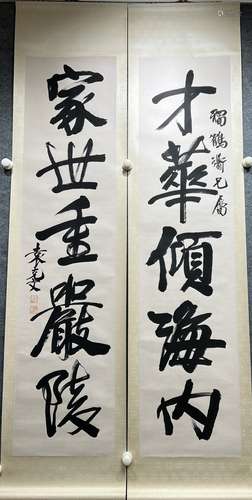 才華傾海內
獨鶴兄屬
家世重嚴陵
袁克文